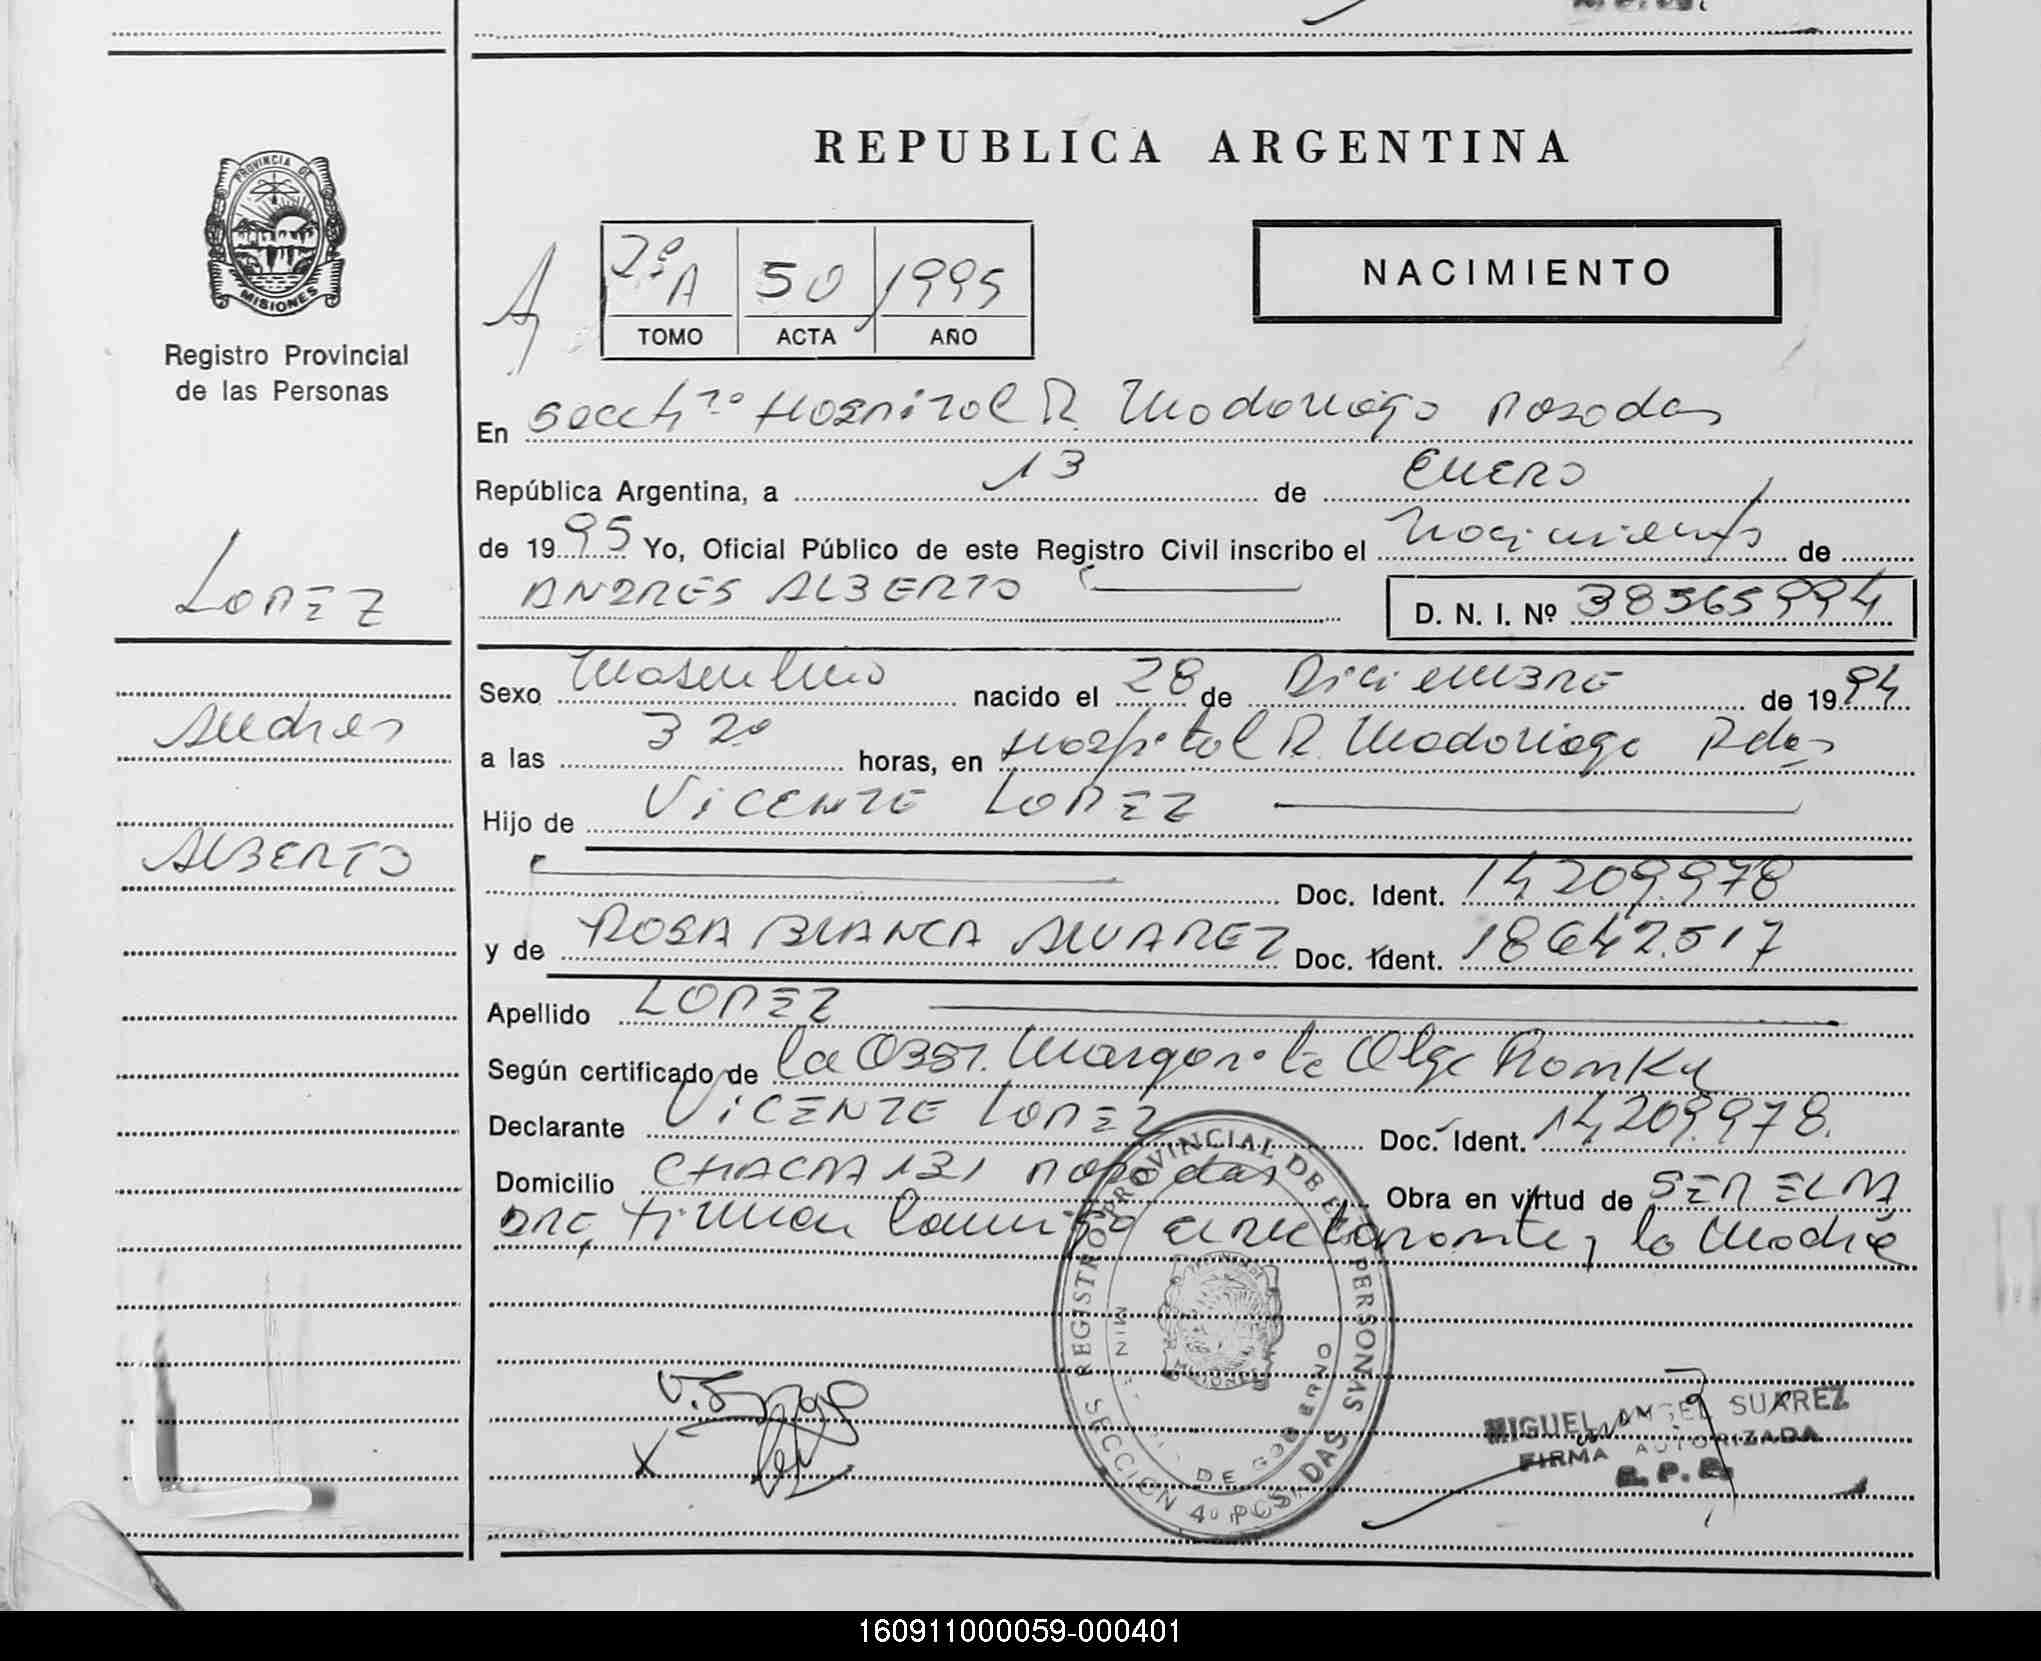 REPUBLICA ARGENTINA
PROVINCIA DE
MISIONES
Registro Provincial
de las Personas
2º A 50 1995
TOMO ACTA AÑO
NACIMIENTO
En Secc 4ta Hospital R. Madariaga Posadas
República Argentina, a 13 de ENERO
de 1995 Yo, Oficial Público de este Registro Civil inscribo el Nacimiento de
ANDRES ALBERTO D. N. I. Nº 38565994
LOPEZ
Andres
ALBERTO
Sexo Masculino nacido el 28 de Diciembre de 1994
a las 3 20 horas, en Hospital R. Madariaga Pdas
Hijo de VICENTE LOPEZ
Doc. Ident. 14209.978
y de ROSA BLANCA ALVAREZ Doc. Ident. 18642.517
Apellido LOPEZ
Según certificado de la Obst. Margarita Olga
Declarante VICENTE LOPEZ Doc. Ident. 14,209.978.
Domicilio CHACRA 131 Posadas Obra en virtud de SER EL PA
DRE, Firman conmigo el declarante y la Madre
REGISTRO PROVINCIAL DE LAS PERSONAS
DE GOBIERNO
SECCION 4º POSADAS
MIGUEL ANGEL SUAREZ
FIRMA AUTORIZADA
R. P. P.
160911000059-000401